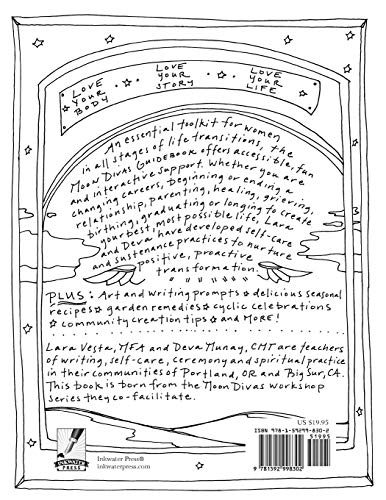 LOVE YOUR BODY
LOVE YOUR STORY
LOVE YOUR LIFE
An essential toolkit for women
in all stages of life transitions, the
Moon Divas Guidebook offers accessible, fun
and interactive support. Whether you are
changing careers, beginning or ending a
relationship, parenting, healing, grieving,
birthing, graduating or longing to create
your best, most possible life, Lara
and Deva have developed self-care
and sustenance practices to nurture
positive, proactive
transformation.
PLUS: Art and writing prompts * delicious seasonal
recipes * garden remedies * cyclic celebrations
* community creation tips * and MORE!
Lara Vesta, MFA and Deva Munay, CMT are teachers
of writing, self-care, ceremony and spiritual practice
in their communities of Portland, OR and Big Sur, CA.
This book is born from the Moon Divas workshop
series they co-facilitate.
US $19.95
ISBN 978-1-59299-830-2
51995
9 781592 998302
INKWATER PRESS
Inkwater Press®
inkwaterpress.com